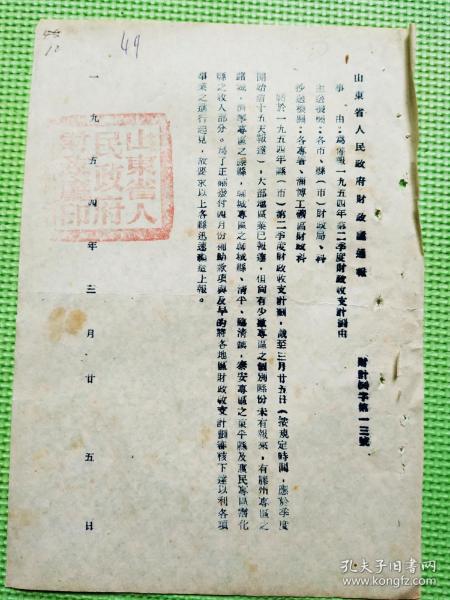 山東省人民政府財政廳通報
財計樹字第一三號
事　由：爲催報一九五四年第二季度財政收支計劃由
主送機關：各市、縣（市）財政局、科
抄送機關：各專署、淄博工礦區財政科
關於一九五四年縣（市）第二季度財政收支計劃，截至三月廿五日（按規定時間，應於季度
開始前十五天報達），大部地區業已報達，但尚有少數專區之個別縣份未有報來，有膠州專區之
諸城，縣，聊城專區之城縣、清平、臨清鎮，泰安專區之東平縣及惠民專區霑化
縣之收入部分。爲了正確撥付四月份補助款項與及早的將各地區財政收支計劃審核下達以利各項
事業之進行起見，故要求以上各縣迅速編造上報。
一九五四年三月廿五日
山東省人
民政府
財政廳印
49
10
孔夫子旧书网
www.kongfz.com